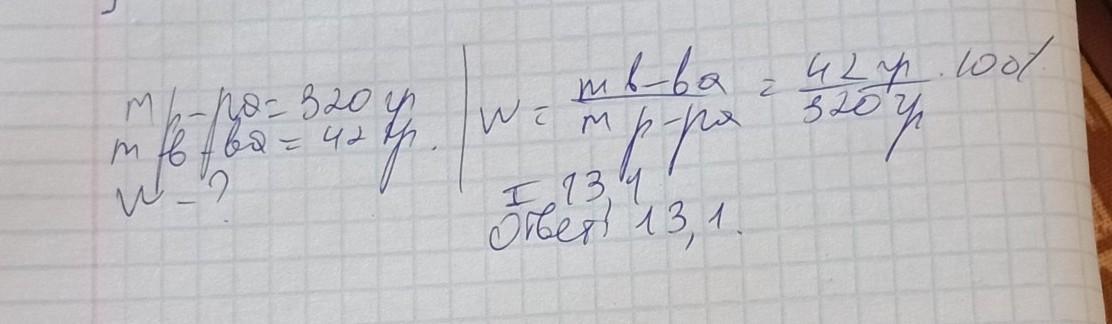 m р-ра = 320 гр
m в-ва = 42 гр.
W - ?
W = m в-ва / m р-ра = 42 гр / 320 гр · 100%
= 13,1
Ответ: 13,1.